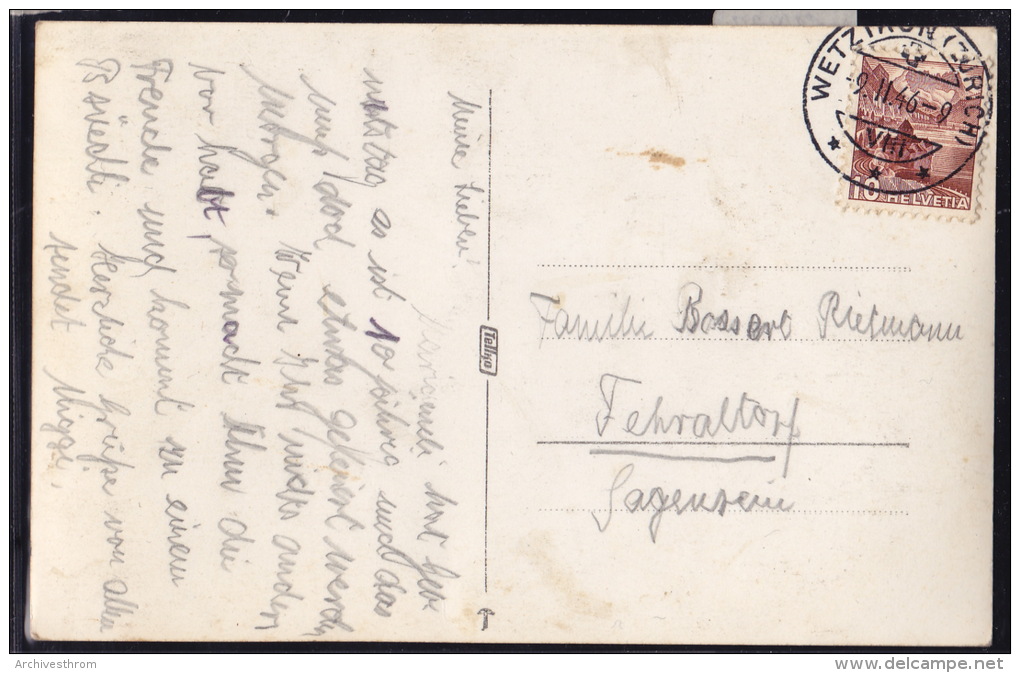 Meine Lieben!
hat Geb-
urtstag es ist 10 jährig und das
muss doch etwas gefeiert werden
Morgen. Wenn Ihr nichts anders
vor habt, so macht Ihm die
Freude und kommt zu einem
Herzliche Grüße von allen
sendet Migge.
WETZIKON (ZÜRICH)
-9.II.46-9
VIII
10 HELVETIA
Tellko
Familie Bossert Rietmann
Fehraltorf
Archivesthrom
www.delcampe.net